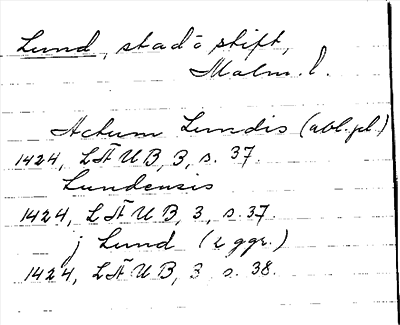 Lund, stad o stift,
Malm. l.
Actum Lundis (abl. pl.)
1424, LÄUB, 3, s. 37.
Lundensis
1424, LÄUB, 3, s. 37.
j Lund (2 ggr.)
1424, LÄUB, 3, s. 38.